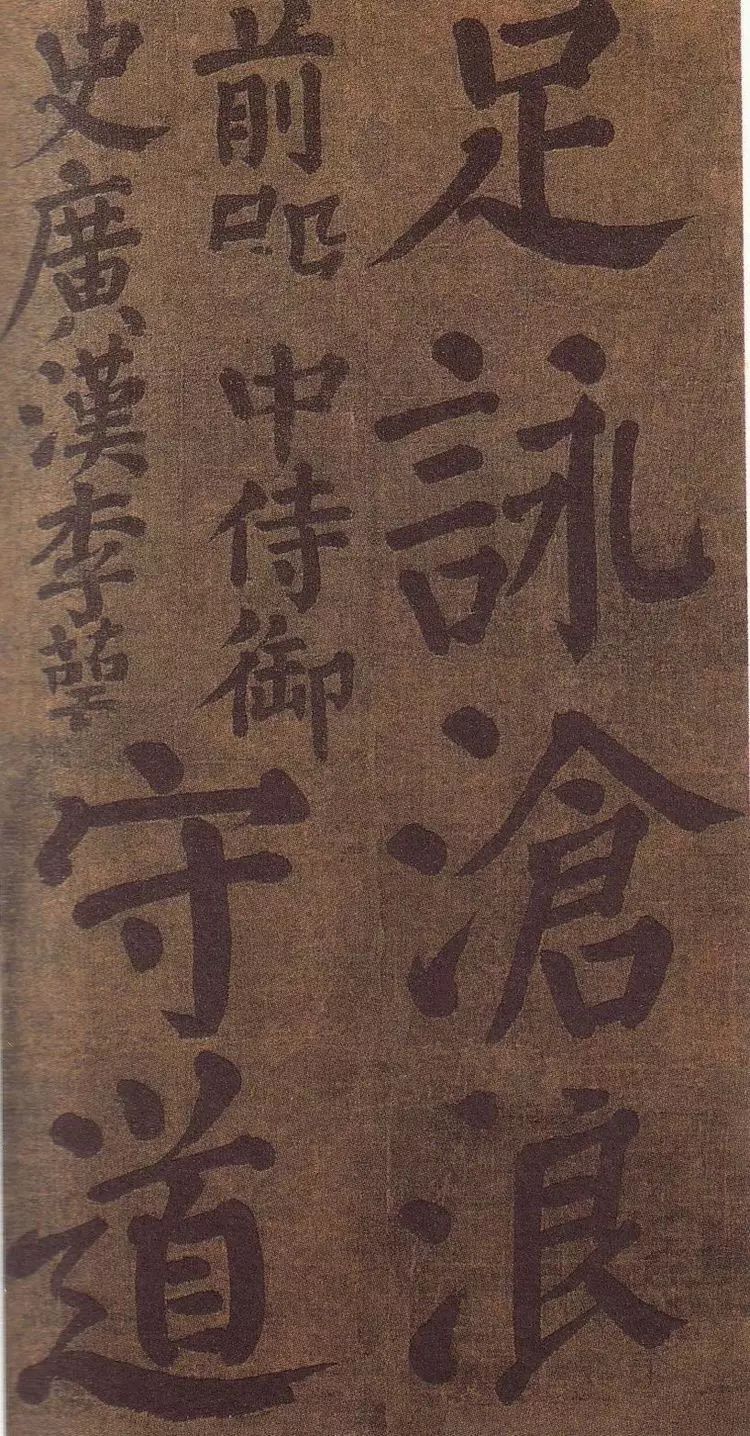 足詠滄浪
前中侍御
史廣漢李
守道